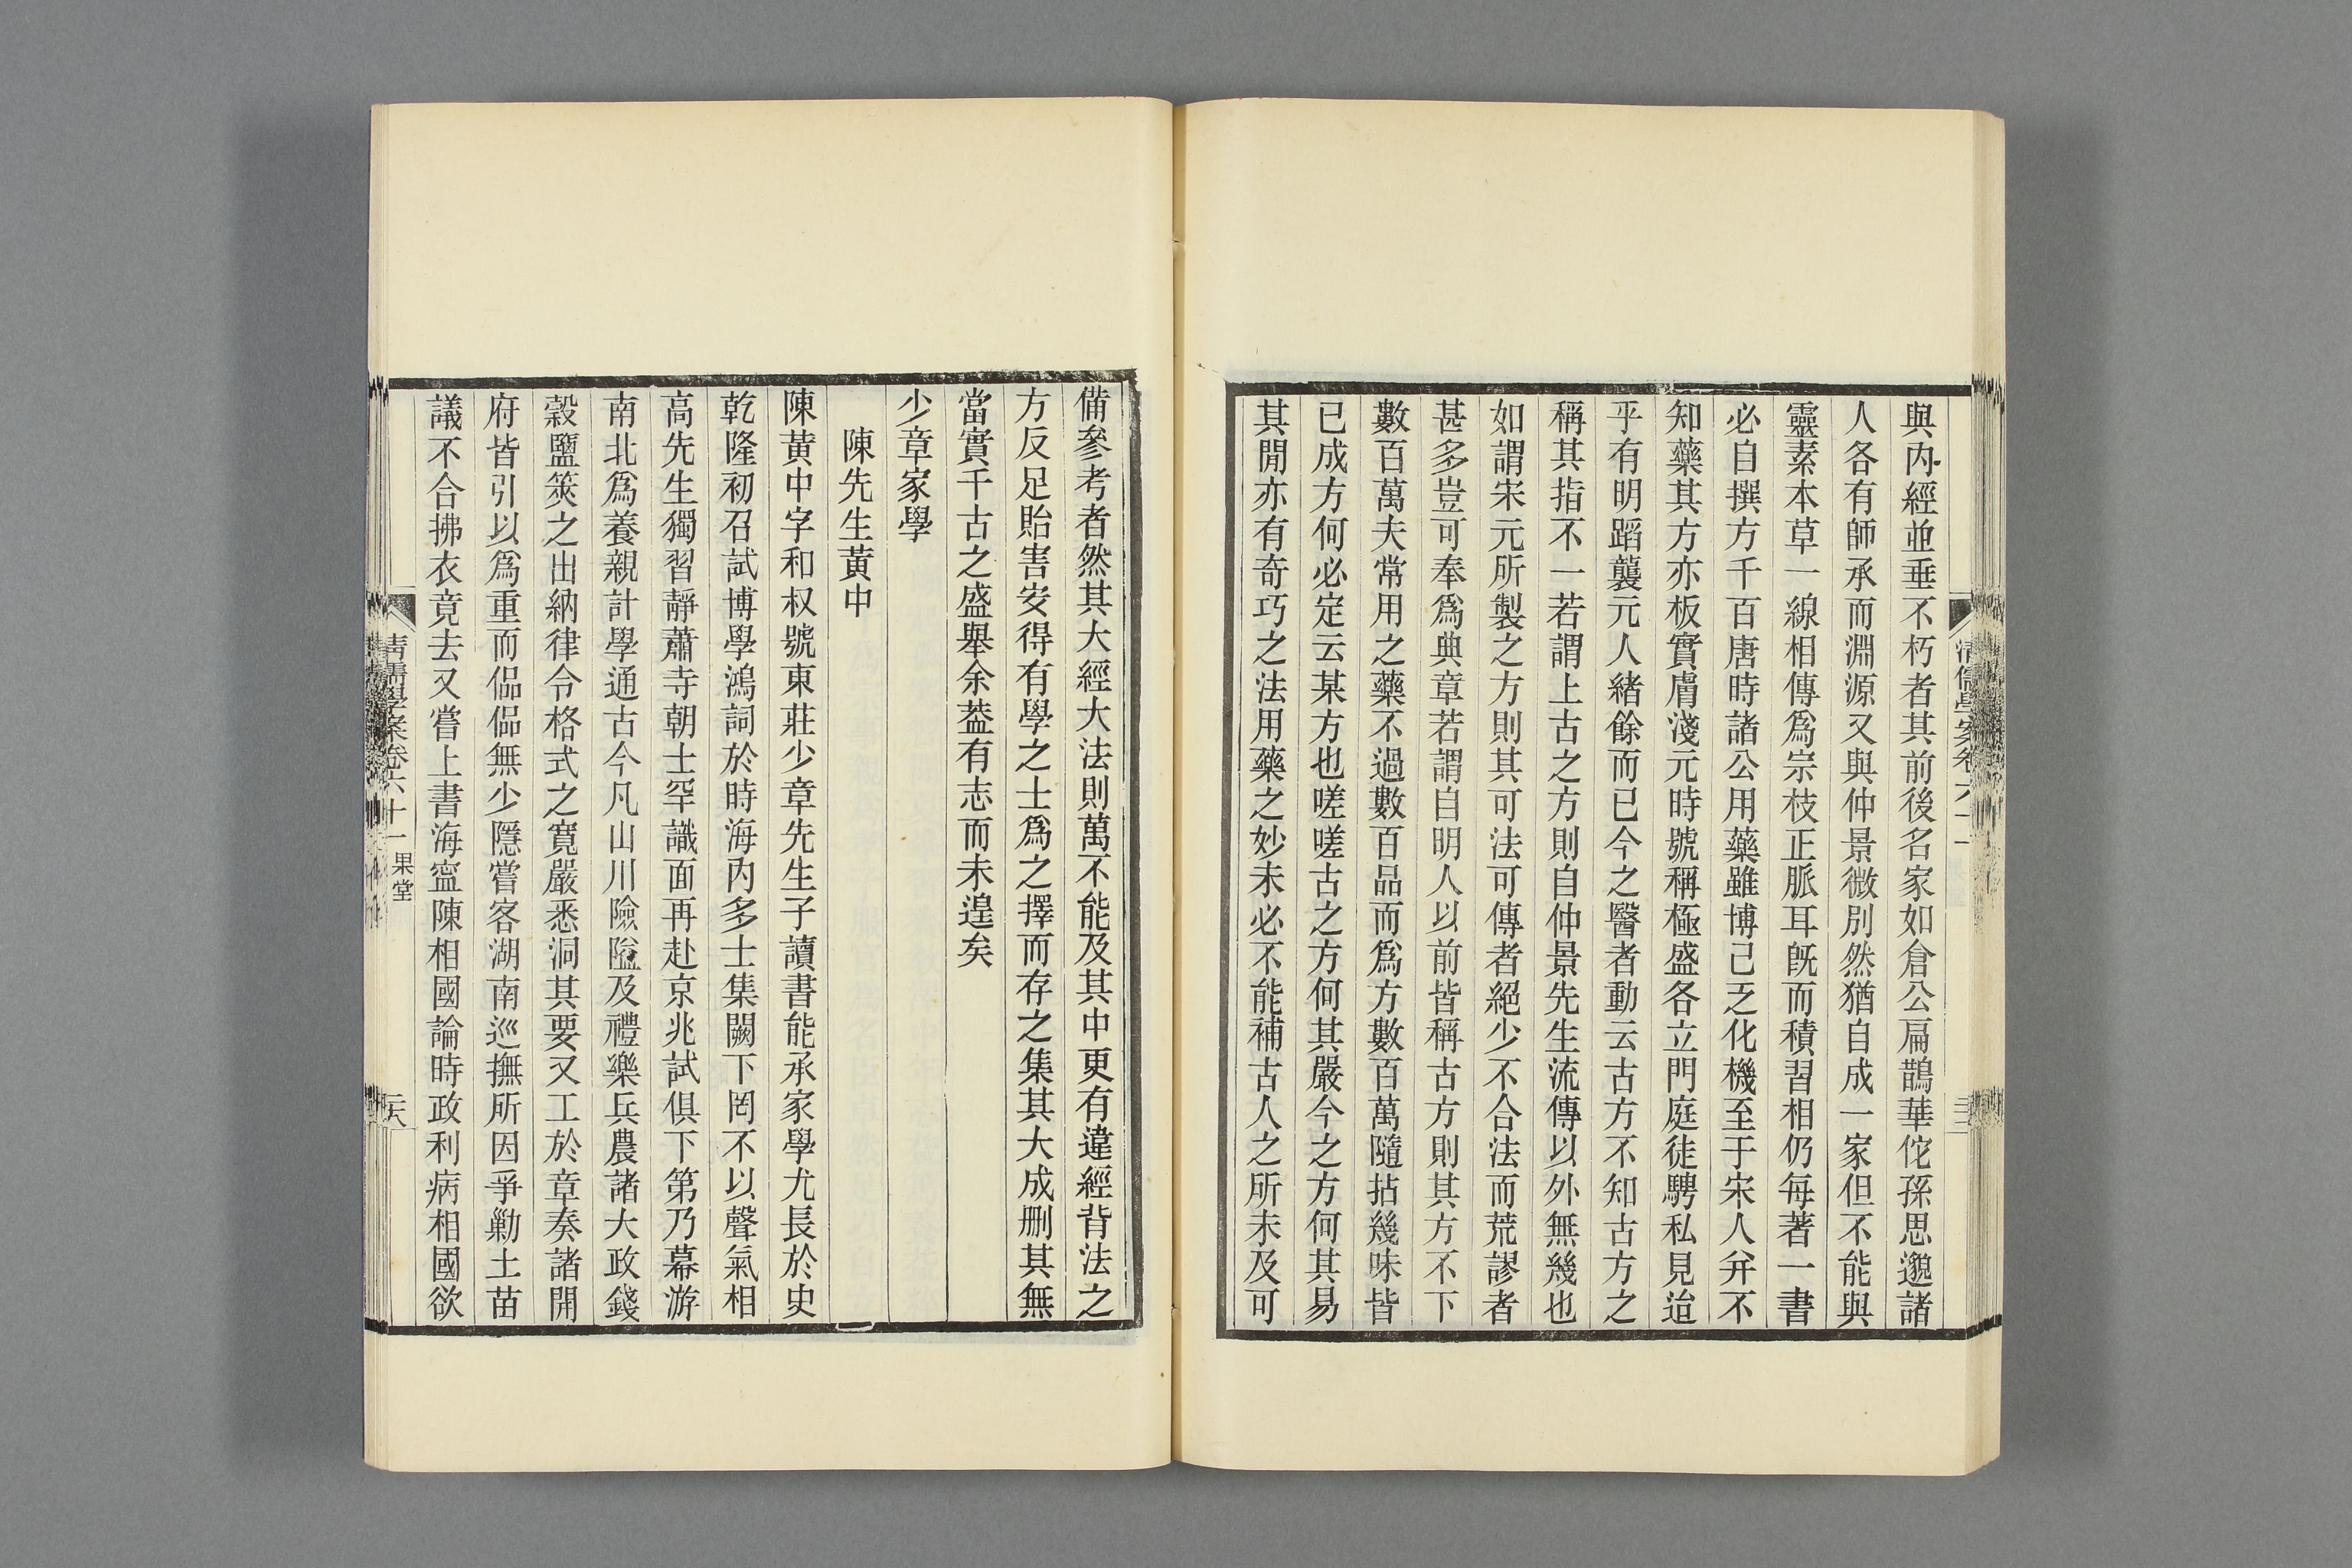 與內經並垂不朽者其前後名家如倉公扁鵲華佗孫思邈諸
人各有師承而淵源又與仲景微別然猶自成一家但不能與
靈素本草一線相傳爲宗枝正脈耳旣而積習相仍每著一書
必自撰方千百唐時諸公用藥雖博己乏化機至于宋人幷不
知藥其方亦板實膚淺元時號稱極盛各立門庭徒騁私見迨
乎有明蹈襲元人緒餘而已今之醫者動云古方不知古方之
稱其指不一若謂上古之方則自仲景先生流傳以外無幾也
如謂宋元所製之方則其可法可傳者絕少不合法而荒謬者
甚多豈可奉爲典章若謂自明人以前皆稱古方則其方不下
數百萬夫常用之藥不過數百品而爲方數百萬隨拈幾味皆
已成方何必定云某方也嗟嗟古之方何其嚴今之方何其易
其閒亦有奇巧之法用藥之妙未必不能補古人之所未及可
備參考者然其大經大法則萬不能及其中更有違經背法之
方反足貽害安得有學之士爲之擇而存之集其大成刪其無
當實千古之盛舉余葢有志而未遑矣
少章家學
陳先生黃中
陳黃中字和叔號東莊少章先生子讀書能承家學尤長於史
乾隆初召試博學鴻詞於時海內多士集闕下罔不以聲氣相
高先生獨習靜蕭寺朝士罕識面再赴京兆試俱下第乃幕游
南北爲養親計學通古今凡山川險隘及禮樂兵農諸大政錢
穀鹽筴之出納律令格式之寬嚴悉洞其要又工於章奏諸開
府皆引以爲重而偘偘無少隱嘗客湖南巡撫所因爭勦土苗
議不合拂衣竟去又嘗上書海寍陳相國論時政利病相國欲
清儒學案卷六十一 果堂